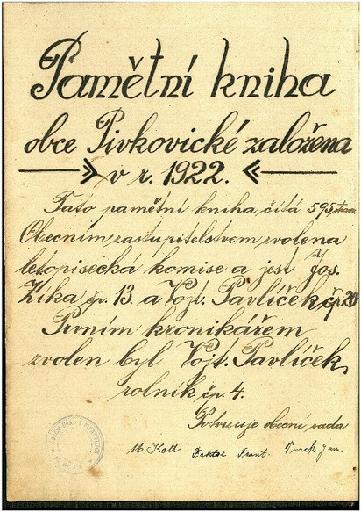 Pamětní kniha
obce Pivkovické založena
v r. 1922.
Tato pamětní kniha čítá 595 stran
Obecním zastupitelstvem zvolena
letopisecká komise a jest Jos.
Zika čp. 13. a Vojt. Pavlíček čp. 20
Prvním kronikářem
zvolen byl Vojt. Pavlíček,
rolník čp 4.
Potvrzuje obecní rada